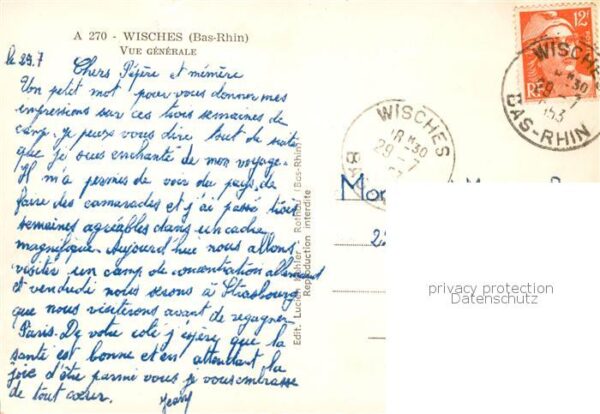 A 270 - WISCHES (Bas-Rhin)
VUE GÉNÉRALE
le 29.7
Chers Pépère et mémère
Un petit mot pour vous donner mes
impressions sur ces trois semaines de
camp. je peux vous dire tout de suite
que je suis enchanté de mon voyage.
Il m'a permis de voir du pays, de
faire des camarades et j'ai passé trois
semaines agréables dans un cadre
magnifique. Aujourd'hui nous allons
visiter un camp de concentration allemand
et vendredi nous serons à Strasbourg
que nous visiterons avant de regagner
Paris. De votre coté j'espère que la
santé est bonne et en attendant la
joie d'être parmi vous je vous embrasse
de tout cœur.
Edit. Lucien - Rothau (Bas-Rhin)
Reproduction interdite
12F
RF
WISCHES
18H30
29-7
1953
BAS-RHIN
WISCHES
18H30
29-7
B
Mon
22
privacy protection
Datenschutz